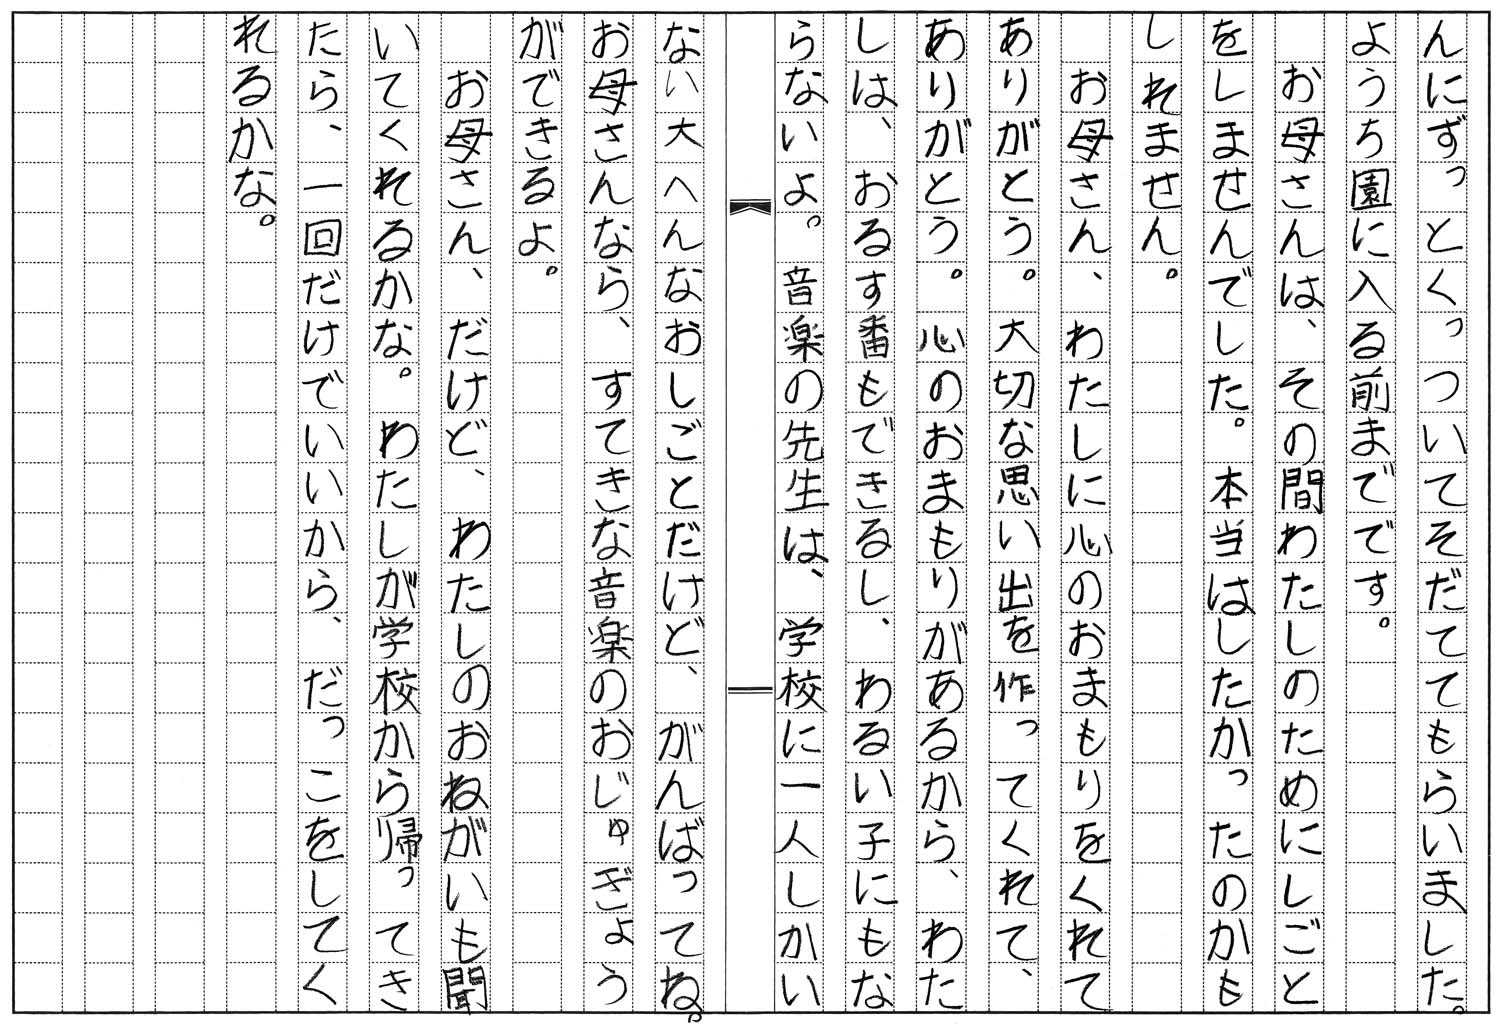 んにずっとくっついてそだててもらいました。
ようち園に入る前まてです。
お母さんは、その間わたしのためにしごと
をしませんでした。本当はしたかったのかも
しれません。
お母さん、わたしに心のおまもりをくれて
ありがとう。大切な思い出を作ってくれて、
ありがとう。心のおまもりがあるから、わた
しは、おるす番もできるし、わるい子にもな
らないよ。音楽の先生は、学校に一人しかい
ない大へんなおしごとだけど、がんばってね。
お母さんなら、すてきな音楽のおじゅぎょう
ができるよ。
お母さん、だけど、わたしのおねがいも聞
いてくれるかな。わたしが学校から帰ってき
たら、一回だけでいいから、だっこをしてく
れるかな。